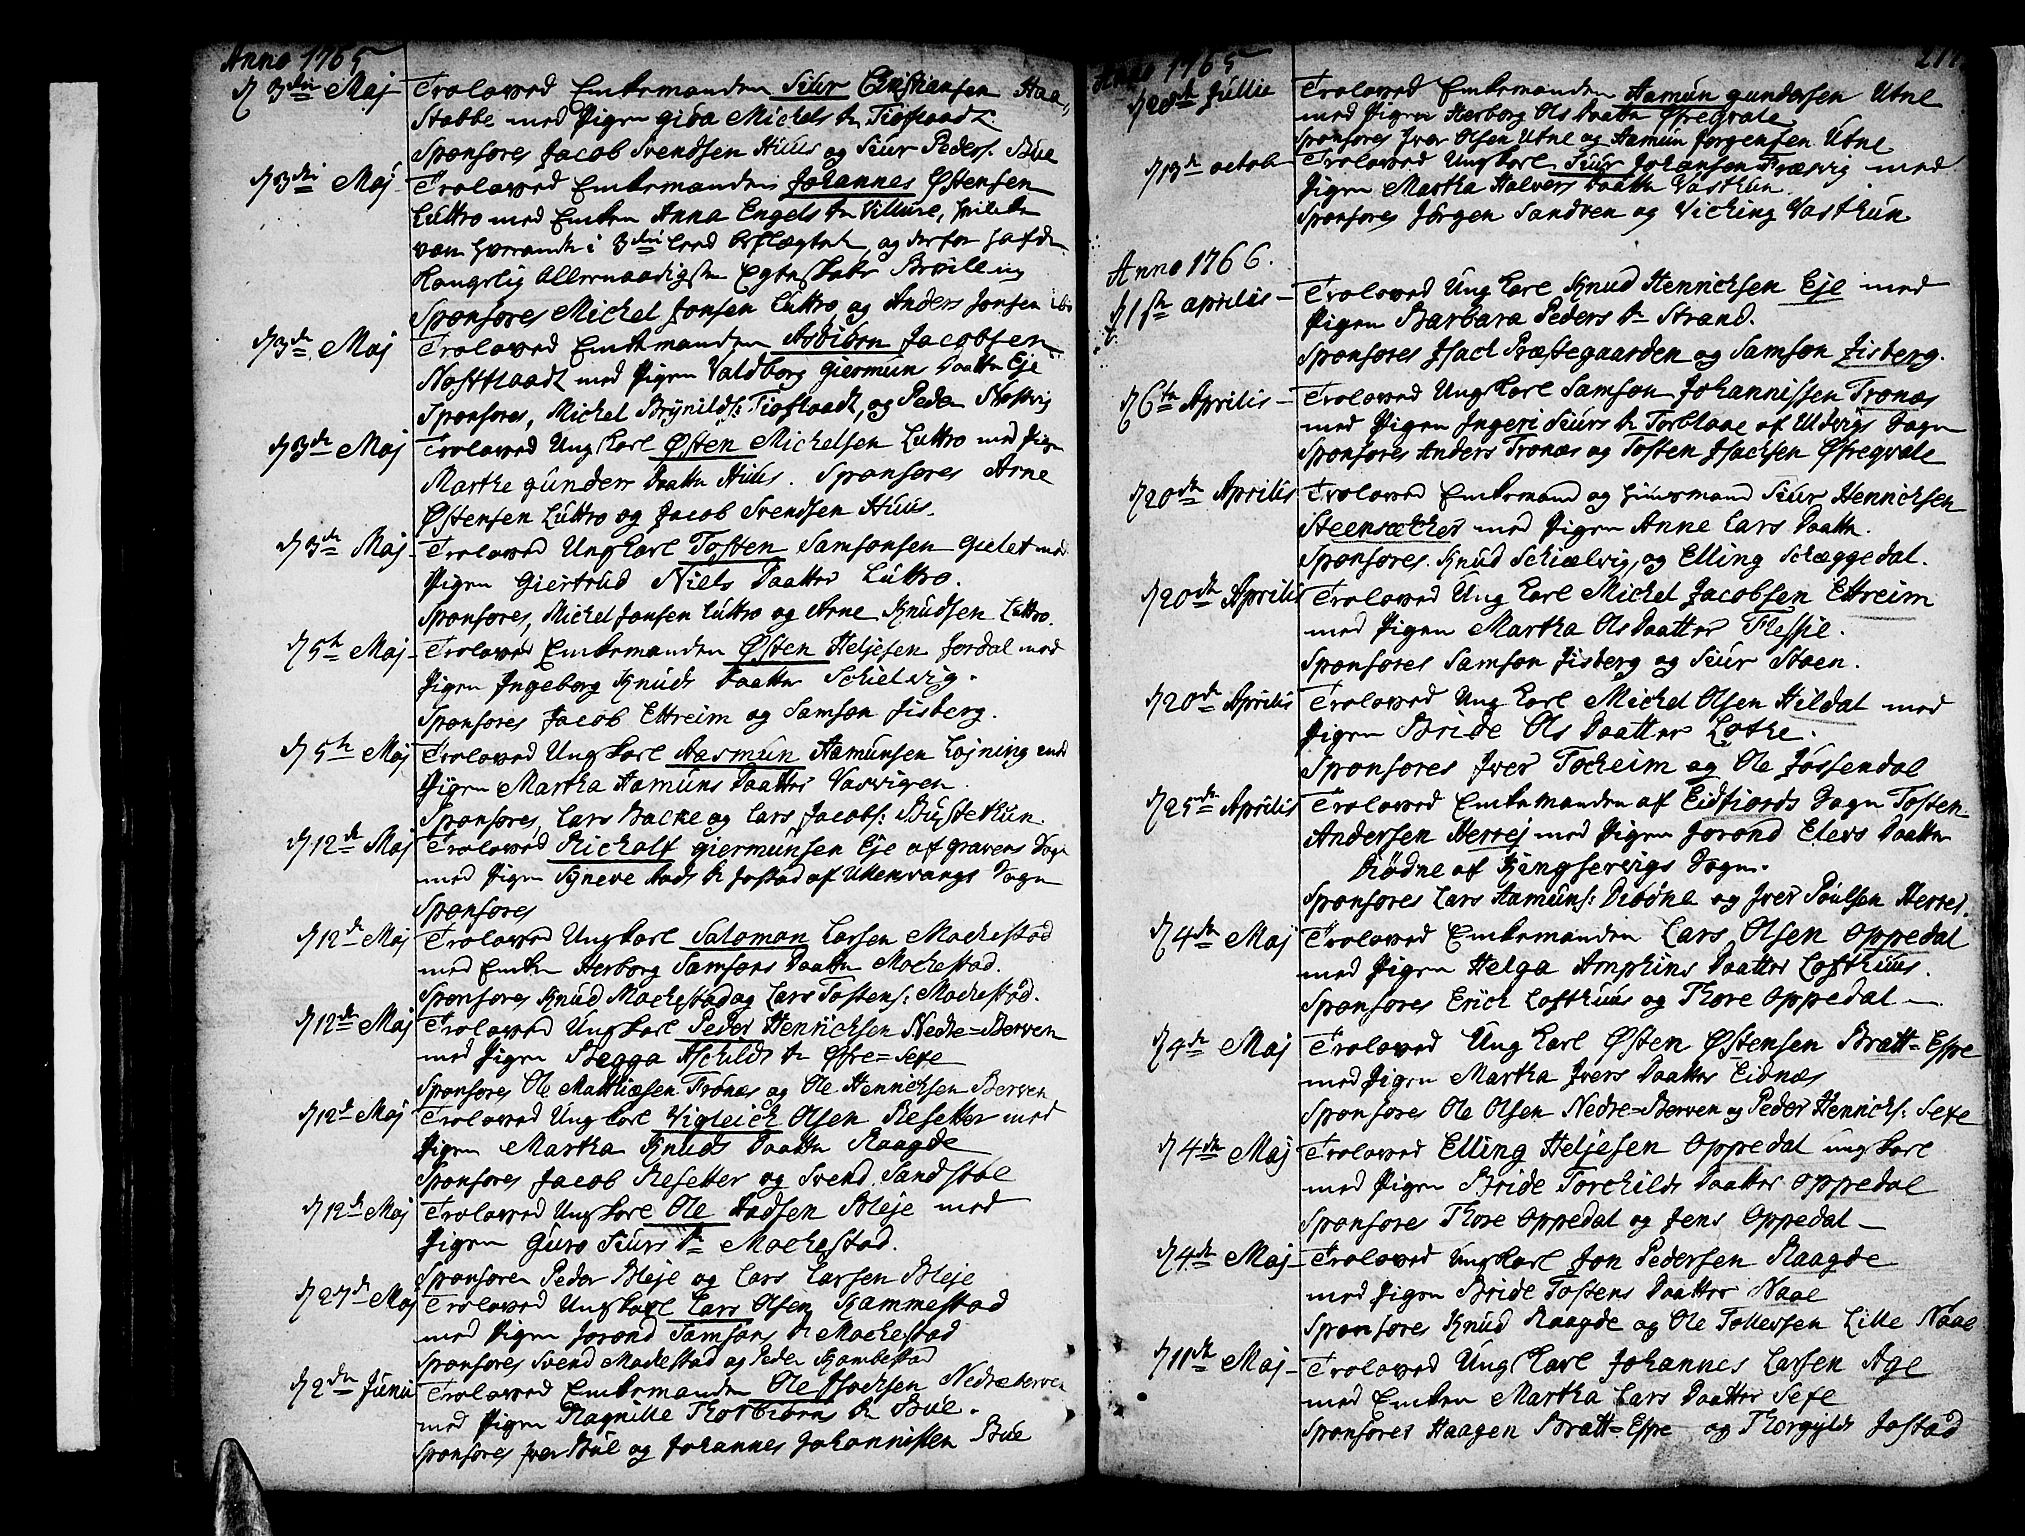 Anno 1765
d 3die Maj Trolowed Enkemanden Siur Christiansen Haa-
Stabbe med Pigen Giøa Michels dr Tioflaadt
Sponsores Jacob Svendsen Huus og Siur Peders. Bue
d 3die Maj Trolowed Enkemanden Johannes Østensen
Luttro med Enken Anna Engels dr Villure, hvilcke
vare hverandre i 3die Leed beslægtede, og derfor hafde
Kongelig Allernaadigste Egteskabs Bevilling
Sponsores Michel Jonsen Luttro og Anders Jonsen ibid
d 3de Maj Trolowed Enkemanden Asbiørn Jacobsen
Nostflaadt med Pigen Valdborg Giermun Daatter Eje
Sponsores, Michel Brynilds: Tioflaadt, og Peder Nostvig
d 3de Maj Trolowed Ung Karl Østen Michelsen Luttro med Pigen
Marthe Gunders Daatter Huus. Sponsores Arne
Østensen Luttro og Jacob Svendsen Huus.
d 3de Maj Trolowed Ung Karl Tosten Samsonsen Qvilet med
Pigen Giertrud Niels Daatter Luttro.
Sponsores, Michel Jonsen Luttro og Arne Knudsen Luttro.
d 5te Maj Trolowed Enkemanden Østen Heljesen Jordal med
Pigen Ingeborg Knuds Daatter Schielvig.
Sponsores Jacob Ettreim og Samson Jisberg.
d 5te Maj Trolowed Ung Karl Aasmun Aamunsen Løjning med
Pigen Martha Aamuns Daatter Vasvigen.
Sponsores, Lars Backe og Lars Jacobs: Bustethun
d 12te Maj Trolowed Richolf Giermunsen Eje af Gravens Sogn
med Pigen Syneve Aads Dr Jostad af Ullensvangs Sogn
Sponsores
d 12te Maj Trolowed Ung Karl Salomon Larsen Mochestad
med Enken Herborg Samsons Daatter Mochestad.
Sponsores Knud Mochestad og Lars Tostens: Mochestad.
d 12te Maj Trolowed Ung Karl Peder Henrichsen Nedre=Berven
med Pigen Segga Aschilds dr Øfre=Sexe
Sponsores Ole Matthiæsen Tronæs og Ole Henrichsen Berven
d 12te Maj Trolowed Ung Karl Vigleich Olsen Resetter med
Pigen Martha Knuds Daatter Raagde
Sponsores Jacob Resetter og Svend Sandstøe
d 12te Maj Trolowed Ung Karl Ole Aadsen Bleje med
Pigen Guro Siurs dr Mochestad.
Sponsorer Peder Bleje og Lars Larsen Bleje
d 27de Maj Trolowed Ung Karl Lars Olsen Kammestad
med Pigen Jorond Samsons dr Mochestad
Sponsores Svend Mochestad og Peder Kambestad
d 2den Junii Trolowed Enkemanden Ole Isachsen Nedre Berven
med Pigen Ragnille Thorbiørns Dr Bue.
Sponsores Iver Bue og Johannes Johannissen Bue
Anno 1765
d 28de Jullii Trolowed Enkemanden Aamun Gundersen Utne
med Pigen Herborg Ols Daatter Øfreqvale
Sponsores Iver Olsen Utne og Aamun Jørgensen Utne
d 13de octob Trolowed Ung Karl Siur Johansen Trævig med
Pigen Martha Halvers Daatter Vasthun
Sponsores Jørgen Sandven og Viching Vasthun
Anno 1766.
d 1ste aprilis Trolowed Ung Karl Knud Henrichsen Eje med
Pigen Barbara Peders Dr Strand.
Sponsores Isach Præstegaarden og Samson Jisberg.
d 6te Aprilis Trolowed Ung Karl Samson Johannissen Tronæs
med Pigen Ingeri Siurs dr Torblaae af Ulvigs Sogn
Sponsores Anders Tronæs og Tosten Isachsen Øfreqvale
d 20de Aprilis Trolowed Enkemand og Huusmand Siur Henrichsen
Steensætter med Pigen Anne Lars Daatter
Sponsores. Knud Schiælvig, og Elling Schæggedal.
d 20de Aprilis Trolowed Ung Karl Michel Jacobsen Ettreim
med Pigen Martha Ols Daatter Flessie.
Sponsores Samson Jisberg og Siur Staen.
d 20de Aprilis Trolowed Ung Karl Michel Olsen Hildal med
Pigen Bride Ols Daatter Lothe.
Sponsores Iver Tocheim og Ole Jøssendal
d 25de Aprilis Trolowed Enkemanden af Eidfiords Sogn Tosten
Andersen Herrej med Pigen Jorond Elevs Daatter
Diødne af Kingservigs Sogn.
Sponsores Lars Aamuns: Diøone og Iver Poulsen Herrej.
d 4de Maj Trolowed Enkemanden Lars Olsen Oppedal
med Pigen Helga Ampfins Daatter Lofthuus.
Sponsores Erich Lofthuus og Thore Oppedal
d 4de Maj Trolowed Ung Karl Østen Østensen Bratt=Espe
med Pigen Martha Ivers Daatter Eidnæs
Sponsores Ole Olsen Nedre=Berven og Peder Henrichs: Sexe
d 4de Maj Trolowed Elling Heljesen Oppedal ung Karl
med Pigen Bride Torchilds Daatter Oppedal
Sponsores Thore Oppedal og Jens Oppedal
d 4de Maj Trolowed Ung Karl Jon Pedersen Raagde
med Pigen Bride Tostens Daatter Naae
Sponsores Knud Raagde og Ole Tollevsen Lille Naae
d 11te Maj Trolowed Ung Karl Johannes Larsen Age
med Enken Martha Lars Daatter Sexe
Sponsores Haagen Bratt=Espe og Thorgyls Jostad